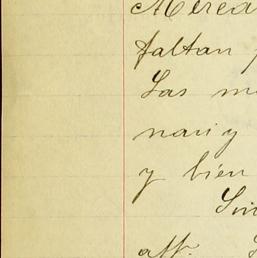 Merca
faltan
Las m
nari y
y bien
Sin
aff.